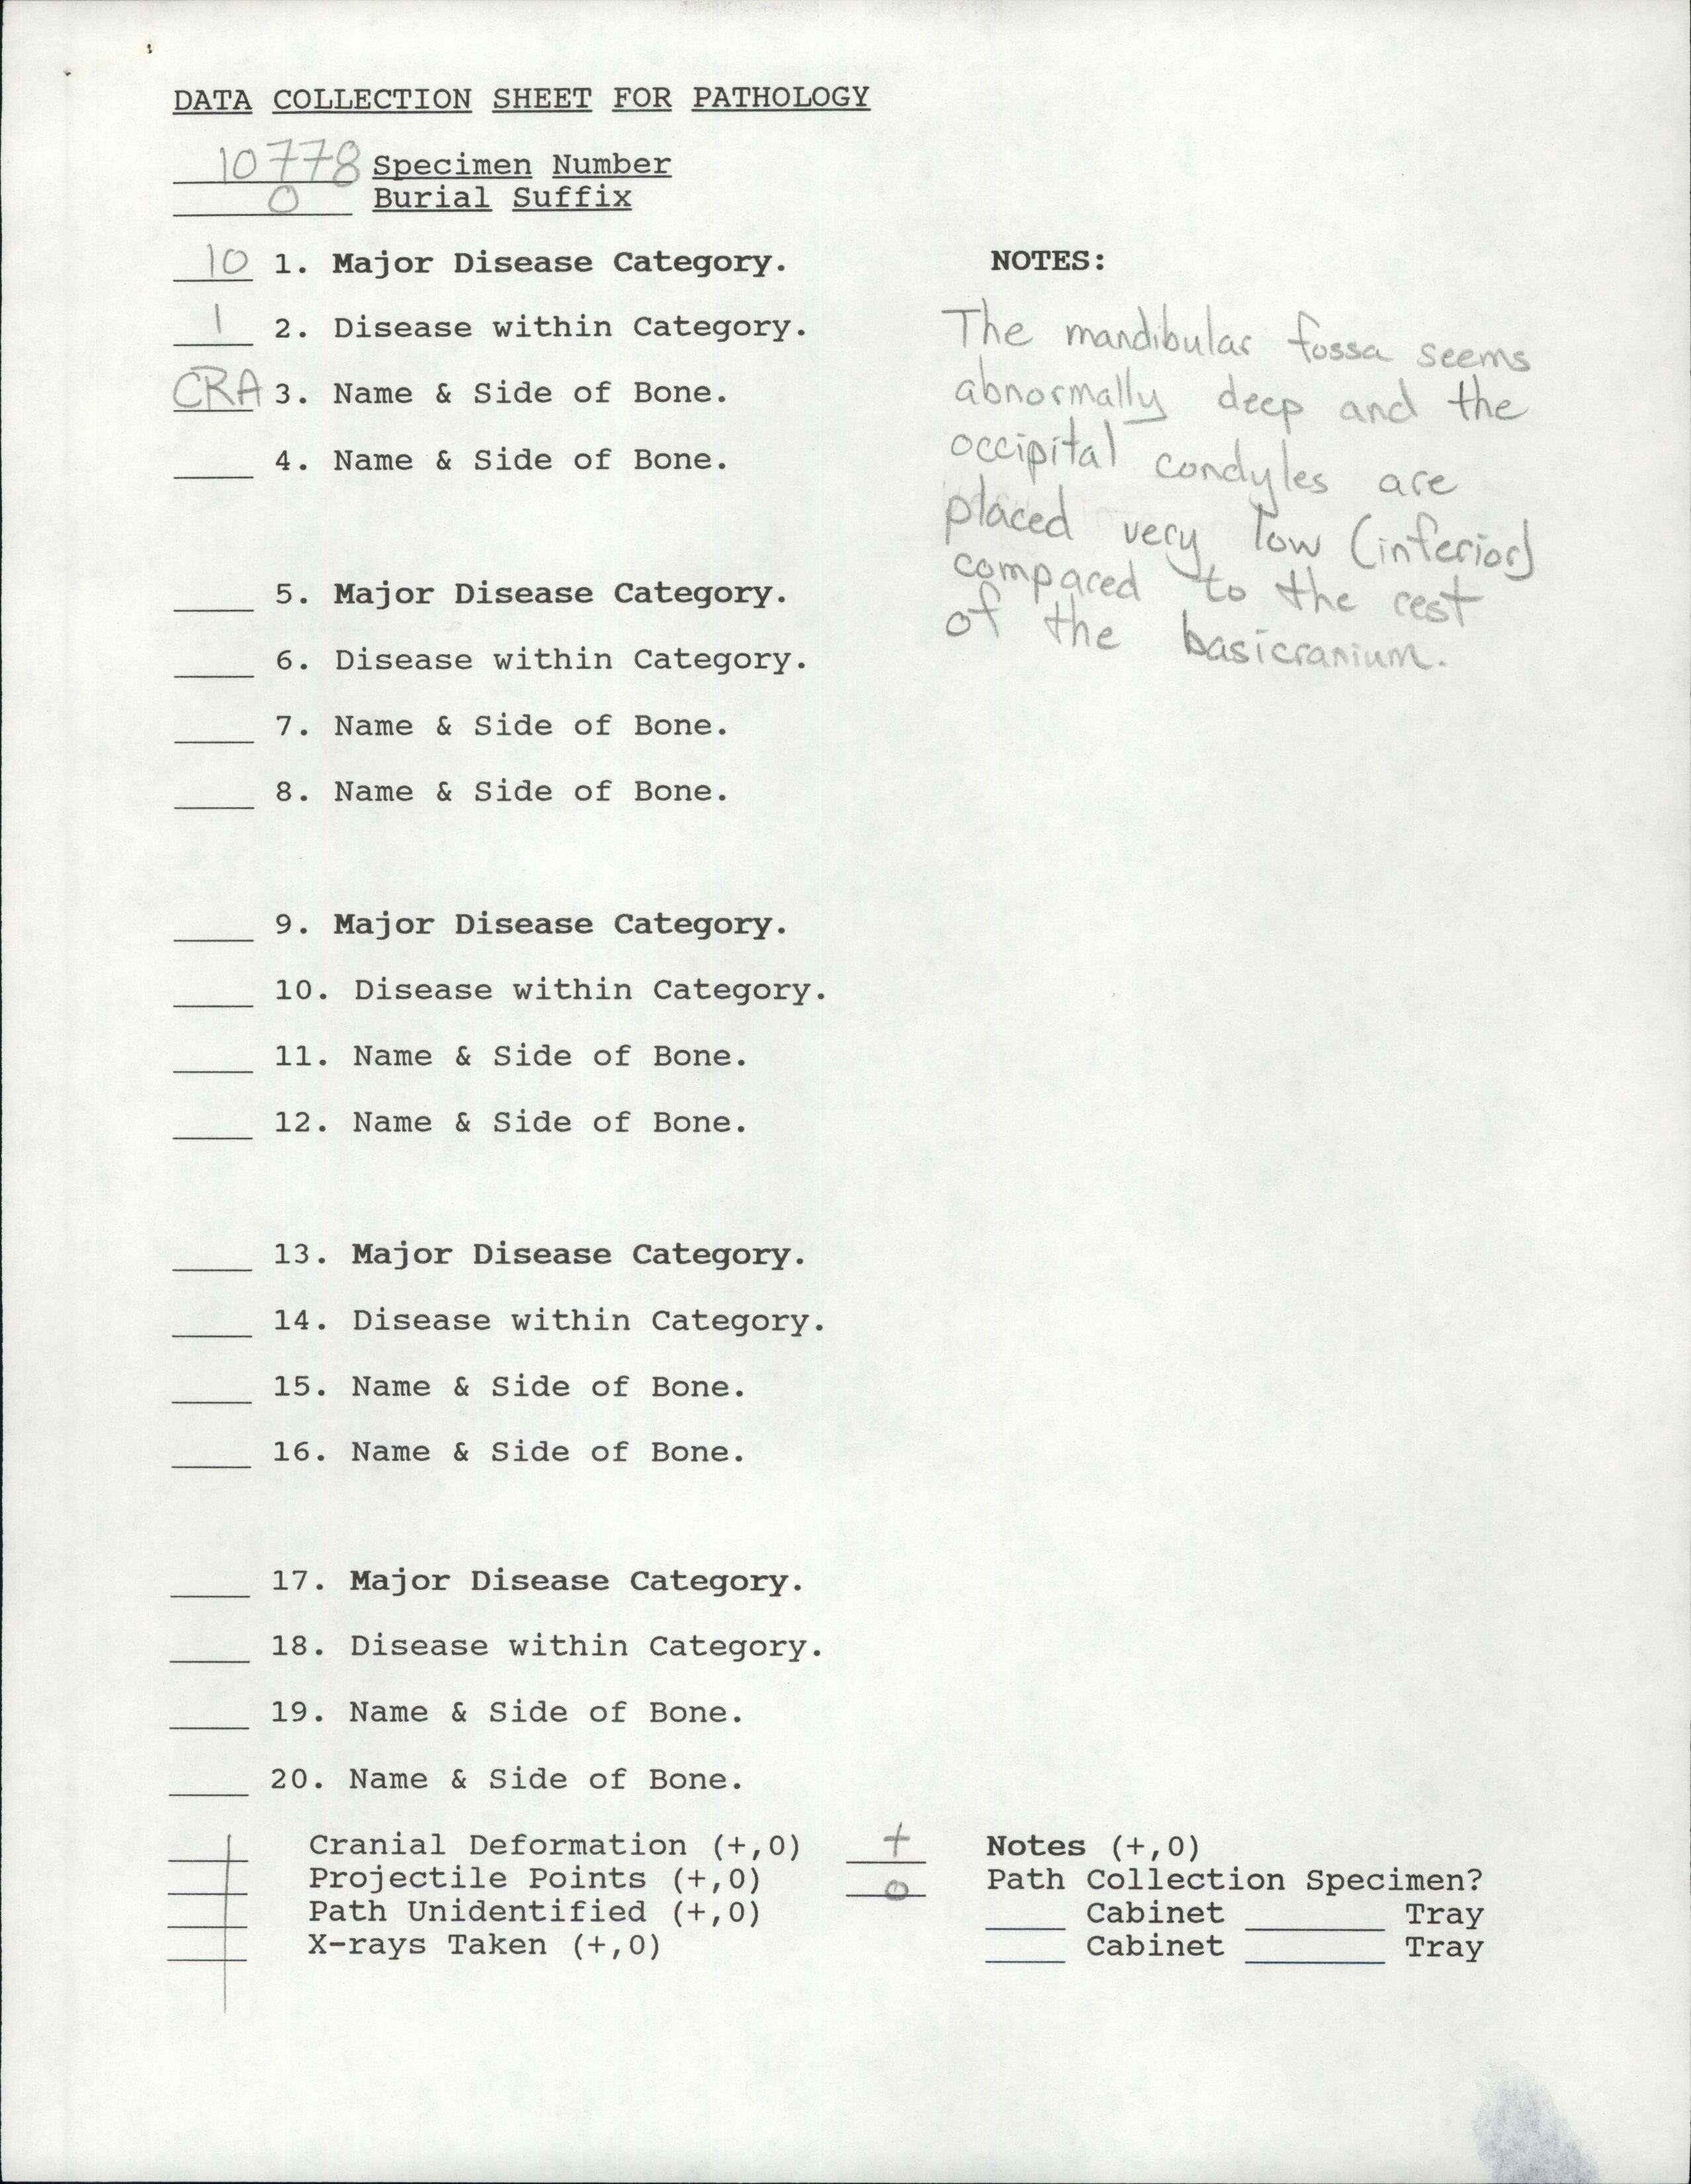 DATA COLLECTION SHEET FOR PATHOLOGY
10778 Specimen Number
0 Burial Suffix
10 1. Major Disease Category.
1 2. Disease within Category.
CRA 3. Name & Side of Bone.
4. Name & Side of Bone.
5. Major Disease Category.
6. Disease within Category.
7. Name & Side of Bone.
8. Name & Side of Bone.
9. Major Disease Category.
10. Disease within Category.
11. Name & Side of Bone.
12. Name & Side of Bone.
13. Major Disease Category.
14. Disease within Category.
15. Name & Side of Bone.
16. Name & Side of Bone.
17. Major Disease Category.
18. Disease within Category.
19. Name & Side of Bone.
20. Name & Side of Bone.
Cranial Deformation (+,0)
Projectile Points (+,0)
Path Unidentified (+,0)
X-rays Taken (+,0)
NOTES:
The mandibular fossa seems
abnormally deep and the
occipital condyles are
placed very low (inferior)
compared to the rest
of the basicranium.
+ Notes (+,0)
0 Path Collection Specimen?
Cabinet Tray
Cabinet Tray